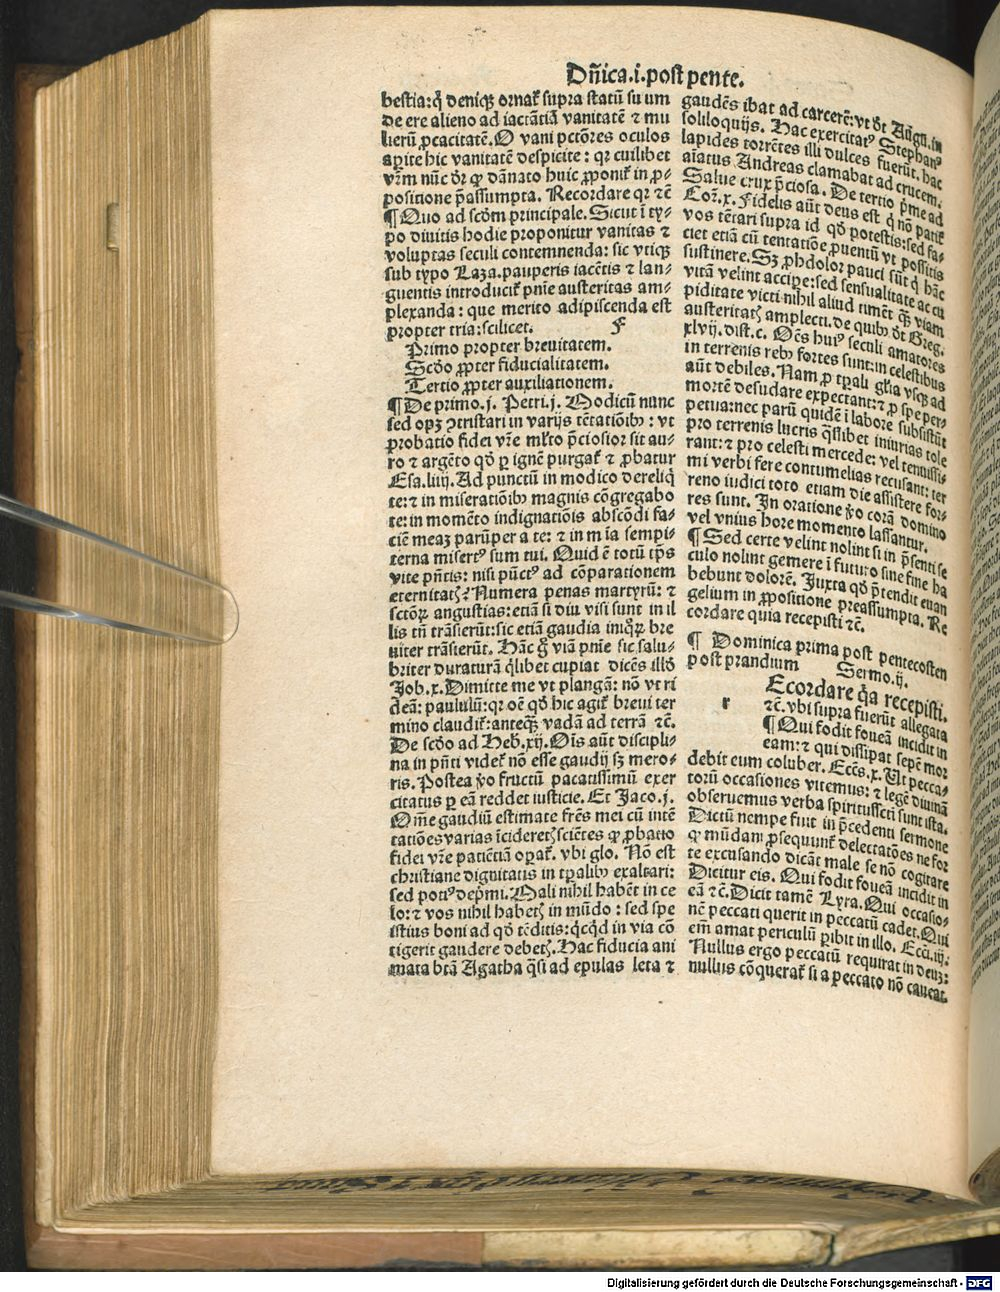 Dñica.i.post pente.
bestia:q̃ deniq3 ornat̃ supra statũ suum
de ere alieno ad iactãtiã vanitatẽ ⁊ mu
lierũ ꝓcacitatẽ. O vani pctõres oculos
aꝑite hic vanitatẽ despicite : qꝛ cuilibet
vr̃m nũc dr̃ ꝙ dãnato huic ꝓponit̃ in ꝓ-
positione p̃assumpta. Recordare qꝛ ⁊c̃
¶ Quo ad scðm principale. Sicut ĩ ty-
po diuitis hodie proponitur vanitas ⁊
voluptas seculi contemnenda: sic vtiqꝫ
sub typo Laza. pauperis iacẽtis ⁊ lan-
guentis introducit̃ pnĩe austeritas am-
plexanda : que merito adipiscenda est
propter tria: scilicet. F
Primo propter breuitatem.
Scðo ꝓpter fiducialitatem.
Tertio ꝓpter auxiliationem.
¶ De primo .j. Petri .j. Modicũ nunc
sed opꝫ ꝯtristari in varijs tẽtatiõibꝰ : vt
probatio fidei vr̃e ml̃to p̃ciosior sit au-
ro ⁊ argẽto qð ꝑ ignẽ purgat̃ ⁊ ꝓbatur
Esa. liiij. Ad punctũ in modico dereliq̃
te: ⁊ in miseratiõibꝰ magnis cõgregabo
te: in momẽto indignatiõis abscõdi fa-
ciẽ meaꝫ parũper a te: ⁊ in mĩa sempi-
terna misertꝰ sum tui. Quid ẽ totũ tp̃s
vite pñtis: nisi pũctꝰ ad cõparationem
eternitatꝭ? Numera penas martyrũ: ⁊
sctõꝝ angustias: etiã si diu visi sunt in il
lis tñ trãsierũt: sic etiã gaudia iniqꝝ bre
uiter trãsierũt. Hãc g̃ viã pnĩe sic salu-
briter duraturã q̃libet cupiat dicẽs illð
Job. x. Dimitte me vt plangã: nõ vt ri
deã: paululũ: qꝛ oẽ qð hic agit̃ breui ter
mino claudit̃: anteqꝫ vadã ad terrã ⁊c̃.
De scðo ad Heb̃. xij. Oĩs aũt discipli-
na in pñti videt̃ nõ esse gaudij sꝫ mero-
ris. Postea ỽo fructũ pacatissimũ exer
citatus ꝑ eã reddet iusticie. Et Jaco. j.
Oẽm gaudiũ estimate fr̃es mei cũ in tẽ
tatiões varias ĩcideretꝭ sciẽtes ꝙ ꝓbatio
fidei vr̃e patiẽtiã opat̃. vbi glo. Nõ est
christiane dignitatis in tꝑalibꝰ exaltari:
sed potiꝰ dep̃mi. Mali nihil habẽt in ce
lo: ⁊ vos nihil habetꝭ in mũdo : sed spe
istius boni ad qð tẽditis: qcqd in via cõ
tigerit gaudere debetꝭ. Hac fiducia ani
mata bt̃ã Agatha q̃si ad epulas leta ⁊
gaudẽs ibat ad carcerẽ: vt ðt Augu. in
soliloquijs. Hac exercitatꝰ Stephanꝰ
lapides torrẽtes illi dulces fuerũt. hac
aĩatus Andreas clamabat ad crucem.
Salue crux p̃ciosa. De tertio p̃me ad
Coꝝ. x. Fidelis aũt deus est q̃ nõ patit̃
vos tẽtari supra id qð potestis: sed fa-
ciet etiã cũ tentatiõe ꝓuentũ vt possitis
sustinere. Sꝫ ꝓhdolor pauci sũt q̃ hãc
vitã velint accipe: sed sensualitate ac cu
piditate victi nihil aliud timẽt q̃ꝫ viam
austeritatꝭ amplecti. de quibꝰ ðt Greg.
xlvij. dist. c. Oẽs huiꝰ seculi amatores
in terrenis rebꝰ fortes sunt: in celestibus
aũt debiles. Nam ꝓ tꝑali gl̃ia vsqꝫ ad
mortẽ desudare expectant: ⁊ ꝓ spe per-
petua: nec parũ quidẽ i labore subsistũt
pro terrenis lucris q̃slibet iniurias tole
rant: ⁊ pro celesti mercede: vel tenuissi-
mi verbi fere contumelias recusant: ter
reno iudici toto etiam die assistere for-
res sunt. In oratione ỽo corã domino
vel vnius hore momento lassantur.
¶ Sed certe velint nolint si in p̃senti se
culo nolint gemere ĩ futuro sine fine ha
bebunt dolorẽ. Juxta qð p̃tendit euan
gelium in ꝓpositione preassumpta. Re
cordare quia recepisti ⁊c̃.
¶ Dominica prima post pentecosten
post prandium Sermo. ij.
r Ecordare q̃a recepisti.
⁊c̃. vbi supra fuerũt allegata
¶ Qui fodit foueã incidit in
eam: ⁊ qui dissipat sepẽ mor
debit eum coluber. Ecc̃s. x. Ut pecca-
torũ occasiones vitemus: ⁊ legẽ diuinã
obseruemus verba spiritussct̃i sunt ista.
Dictũ nempe fuit in p̃cedenti sermone
ꝙ mũdani ꝓsequunt̃ delectatões ne for
te excusando dicãt male se nõ cogitare
Dicitur eis. Qui fodit foueã incidit in
eã ⁊c̃. Dicit tamẽ Lyra. Qui occasio-
nẽ peccati querit in peccatũ cadet. Qui
em̃ amat periculũ ꝑibit in illo. Ecci. iij.
Nullus ergo peccatũ requirat in deuꝫ:
nullus cõquerat̃ si a peccato nõ caueat.
Digitalisierung gefördert durch die Deutsche Forschungsgemeinschaft - DFG